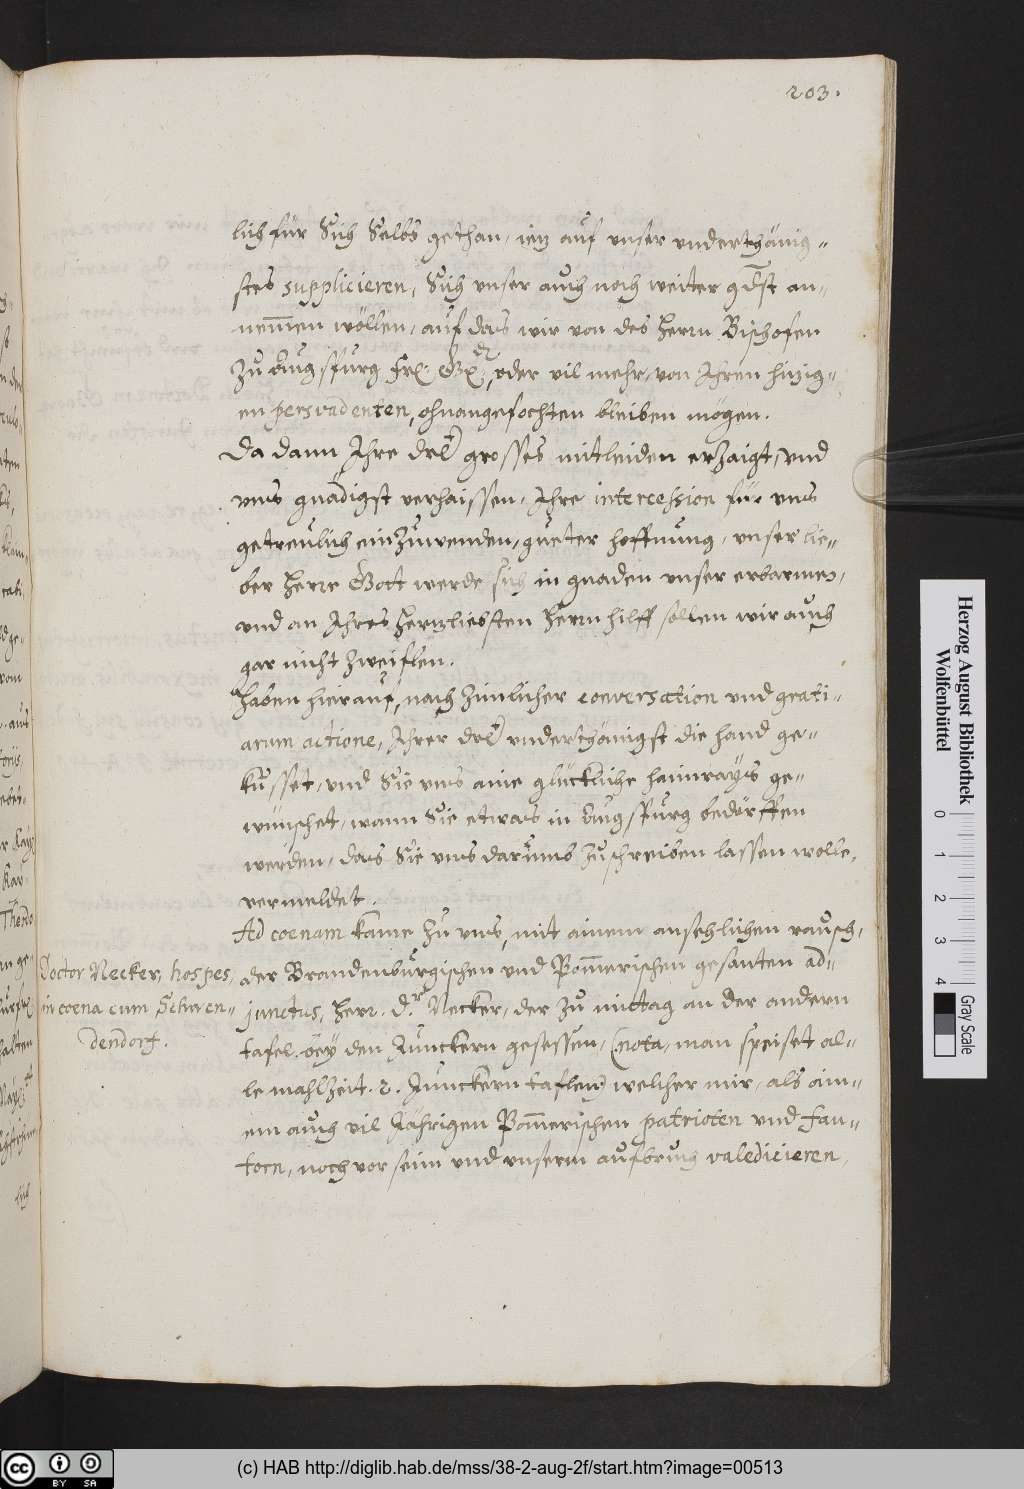 203.
lich für Sich Selbs gethan, iez auf unser underthänig=
stes supplicieren, Sich unser auch noch weiter gdst an=
nemmen wöllen, auf das wir von des Herrn Bischofen
zu Augspurg Frl: Gl:, oder vil mehr, von Ihren hizig=
en persvadenten, ohnangefochten bleiben mögen.
Da dann Ihre drl grosses mitleiden erzaigt, und
uns gnädigst verhaissen, Ihre intercession für uns
getreulich einzuwenden, gueter hoffnung, unser lie=
ber Herr Gott werde sich in gnaden unser erbarmen,
und an Ihres herzliebsten Herrn hilff sollen wir auch
gar nicht zweiflen.
Haben hierauf, nach zimlicher conversation und grati=
arum actione, Ihrer drl underthänigst die hand ge=
küsset, und Sie uns aine glückliche haimrays ge=
wünschet, wann Sie etwas in Augspurg bedörffen
werden, das Sie uns darumb zuschreiben lassen wolle,
vermeldet.
Ad coenam kame zu uns, mit ainem ansehlichen rausch,
der Brandenburgischen und Pommerischen gesanten ad=
junctus, Herr D.r Necker, der zu mittag an der andern
tafel bey den Junckern gesessen, (nota, man speiset al=
le mahlzeit 2. Junckern taflen) welcher mir, als ain=
em auch vil Jährigen Pommerischen patrioten und fau=
torn, noch vor seim und unserm aufbruch valedicieren
Doctor Necker, hospes,
in coena cum Schwen=
dendorf.
lich
Herzog August Bibliothek
Wolfenbüttel
0 1 2 3 4
Gray Scale
cc BY SA
(c) HAB http://diglib.hab.de/mss/38-2-aug-2f/start.htm?image=00513